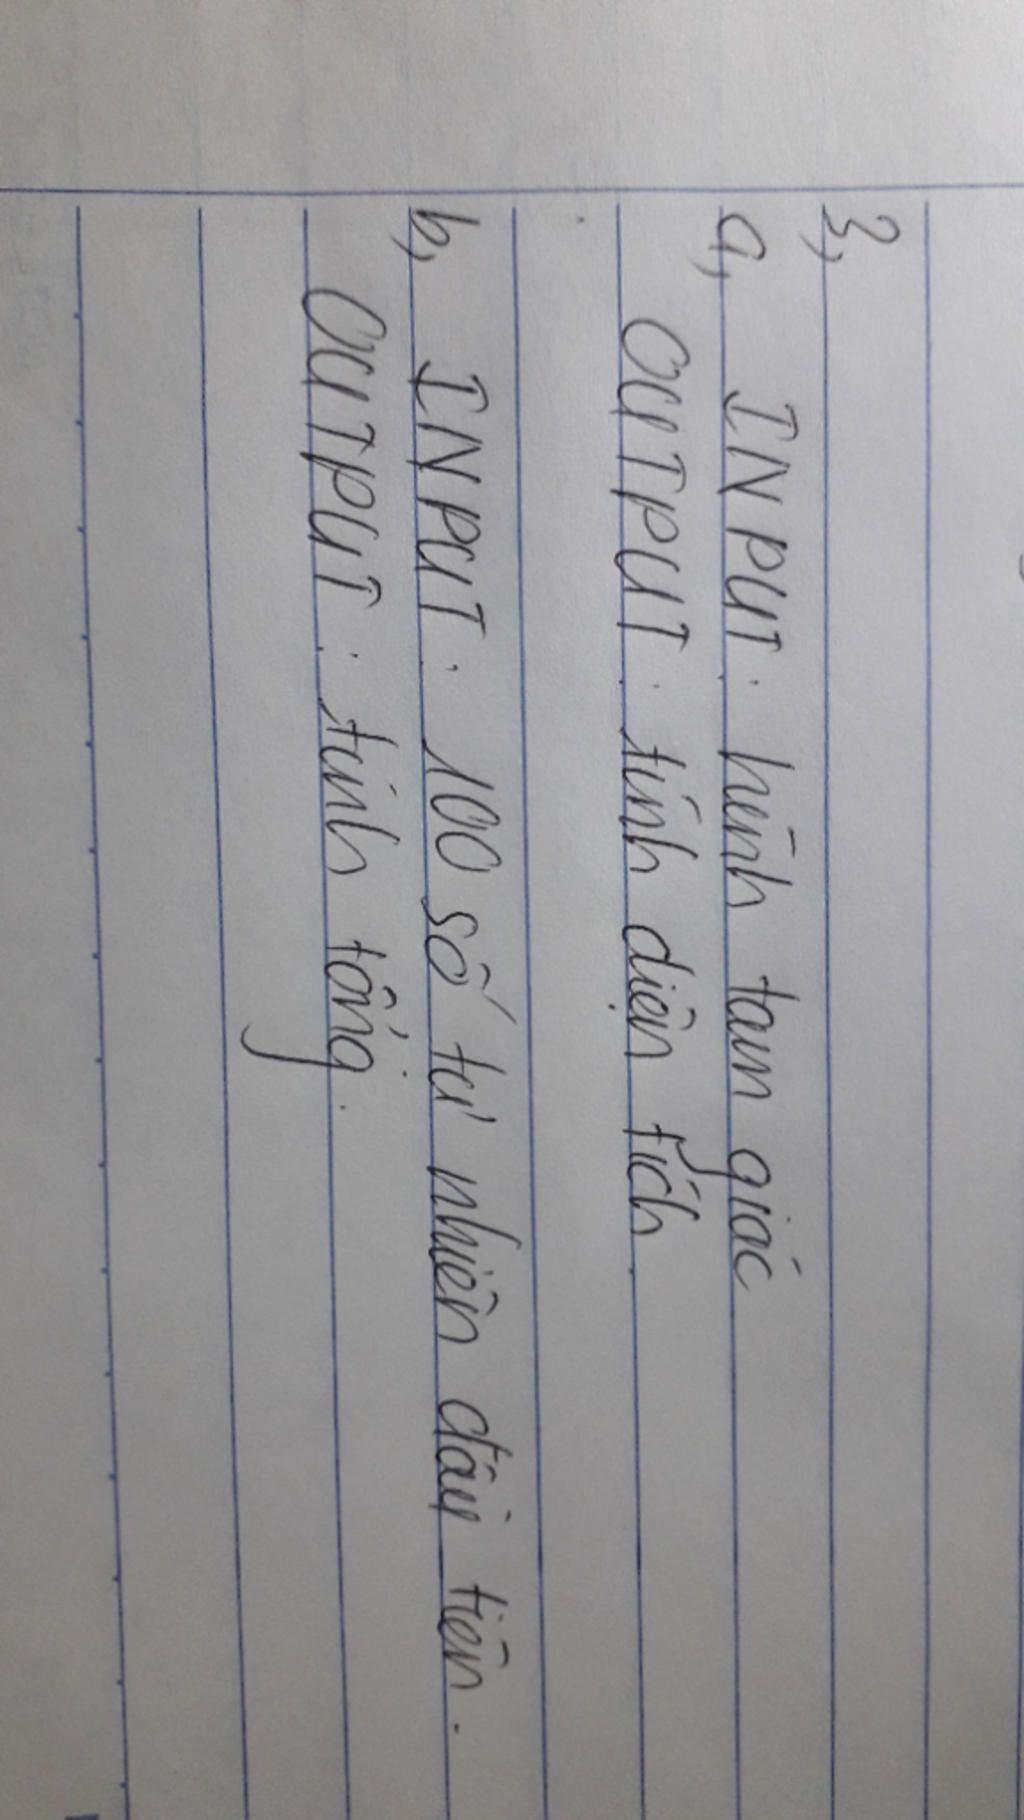 3,
a, INPUT: hình tam giác
OUTPUT: tính diện tích.
b, INPUT: 100 số tự nhiên đầu tiên.
OUTPUT: tính tổng.